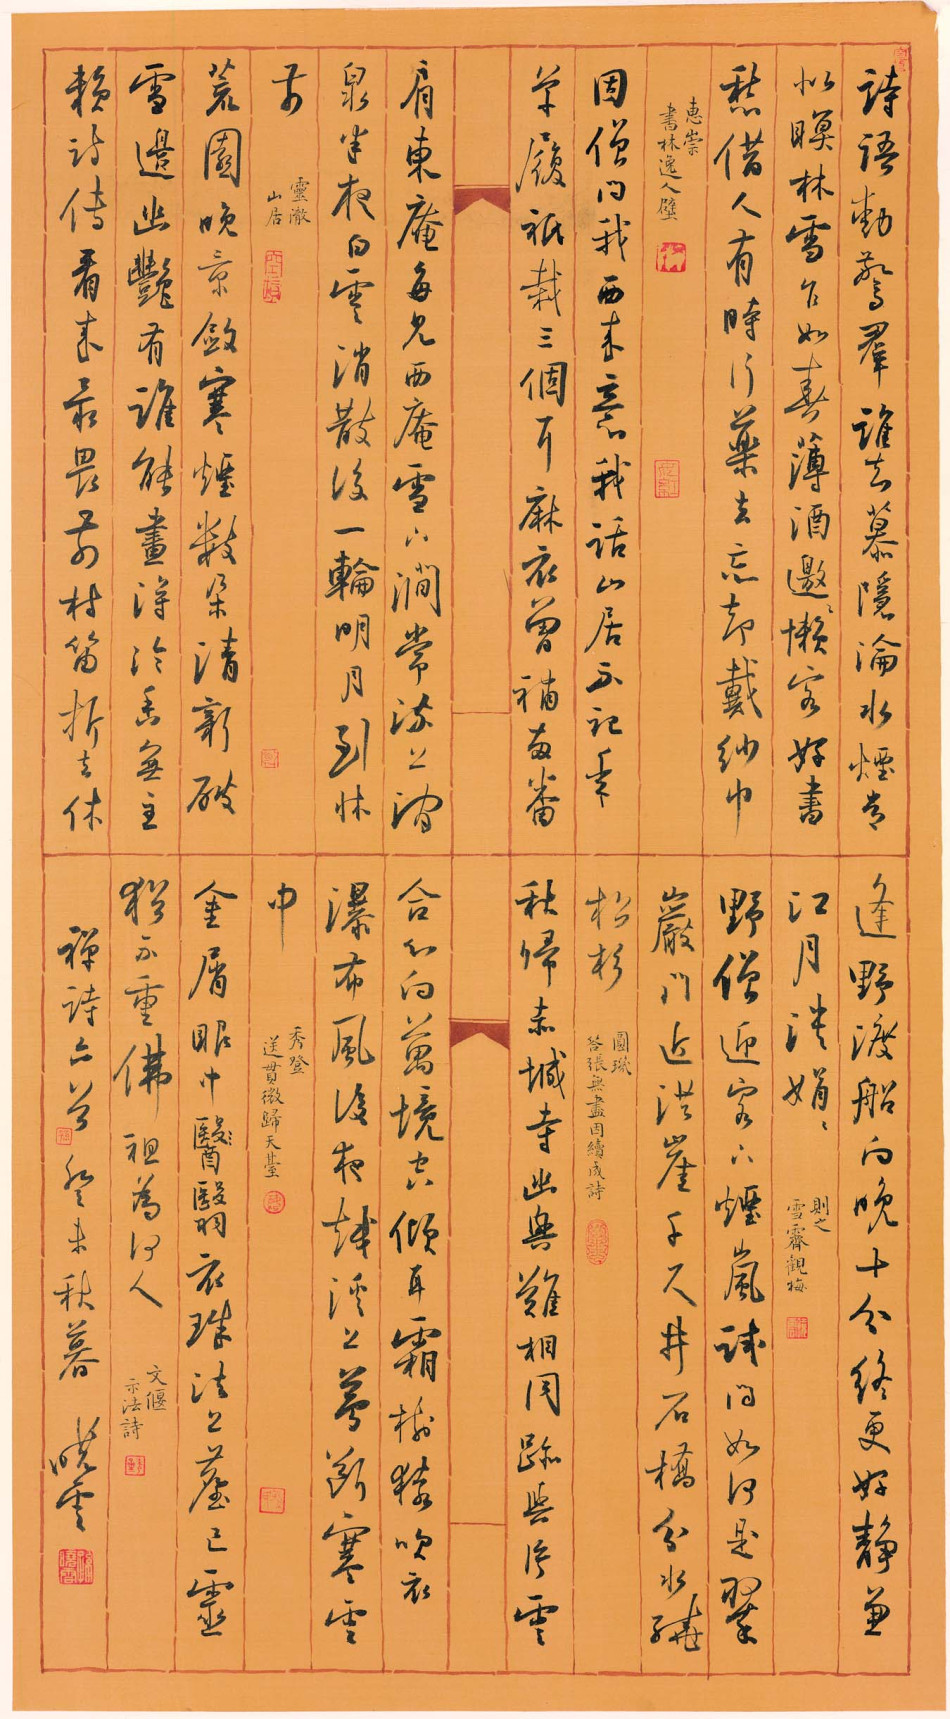 詩語動驚羣誰知慕隱淪水煙常
似暝林雪乍如春薄酒邀懶客好書
愁借人有時行藥去忘却戴紗巾
惠崇
書林逸人壁
因僧問我西來意我話山居不記年
草履祇栽三個耳麻衣曾補兩番
肩東庵每見西庵雪下澗常流上澗
泉半夜白雲消散後一輪明月到牀
前
靈澈
山居
荒園晚景斂寒煙數朵清新破
雪邊幽豔有誰能畫得冷香無主
賴詩傳看來最畏前村笛折去休
逢野渡船向晚十分終更好靜兼
江月淡娟娟
則之
雪霽觀梅
野僧迎客下煙嵐試問如何是翠
巖門近洪崖千尺井石橋分水繞
松杉
圓璣
答張無盡因續成詩
秋歸赤城寺幽興難相同跡與片雲
合心向萬境空傾耳霜樹猿吹衣
瀑布風後夜越溪上夢斷寒雲
中
秀登
送貫微歸天臺
金屑眼中翳翳衣珠法上塵己靈
猶不重佛祖為何人
文偃
示法詩
禪詩六首癸未秋暮 曉雲